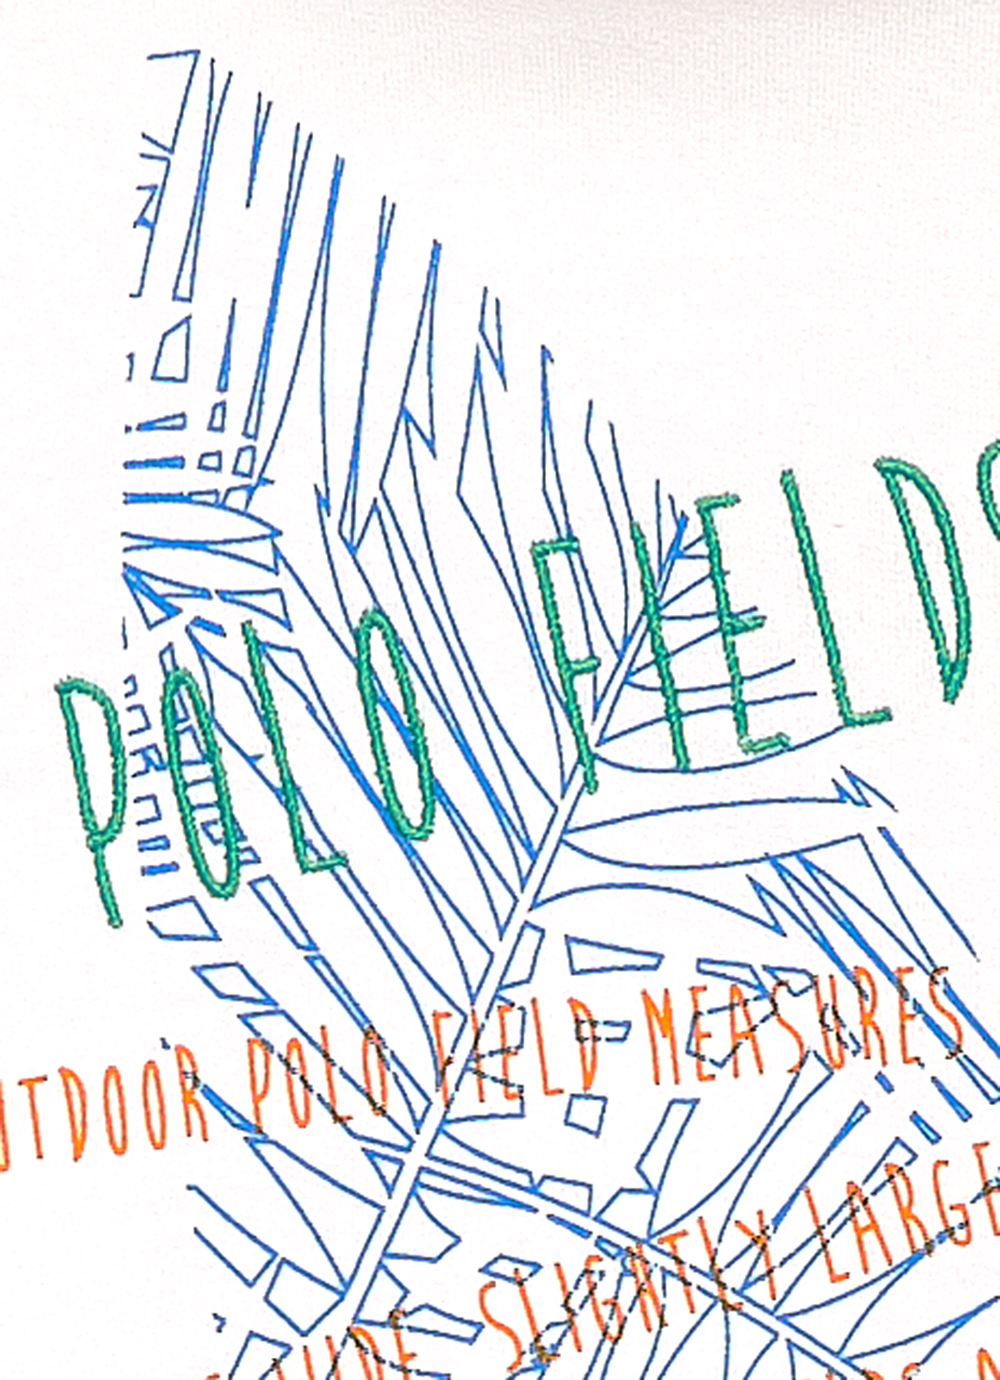 POLO FIELDS
OUTDOOR POLO FIELD MEASURES
SLIGHTLY LARGE